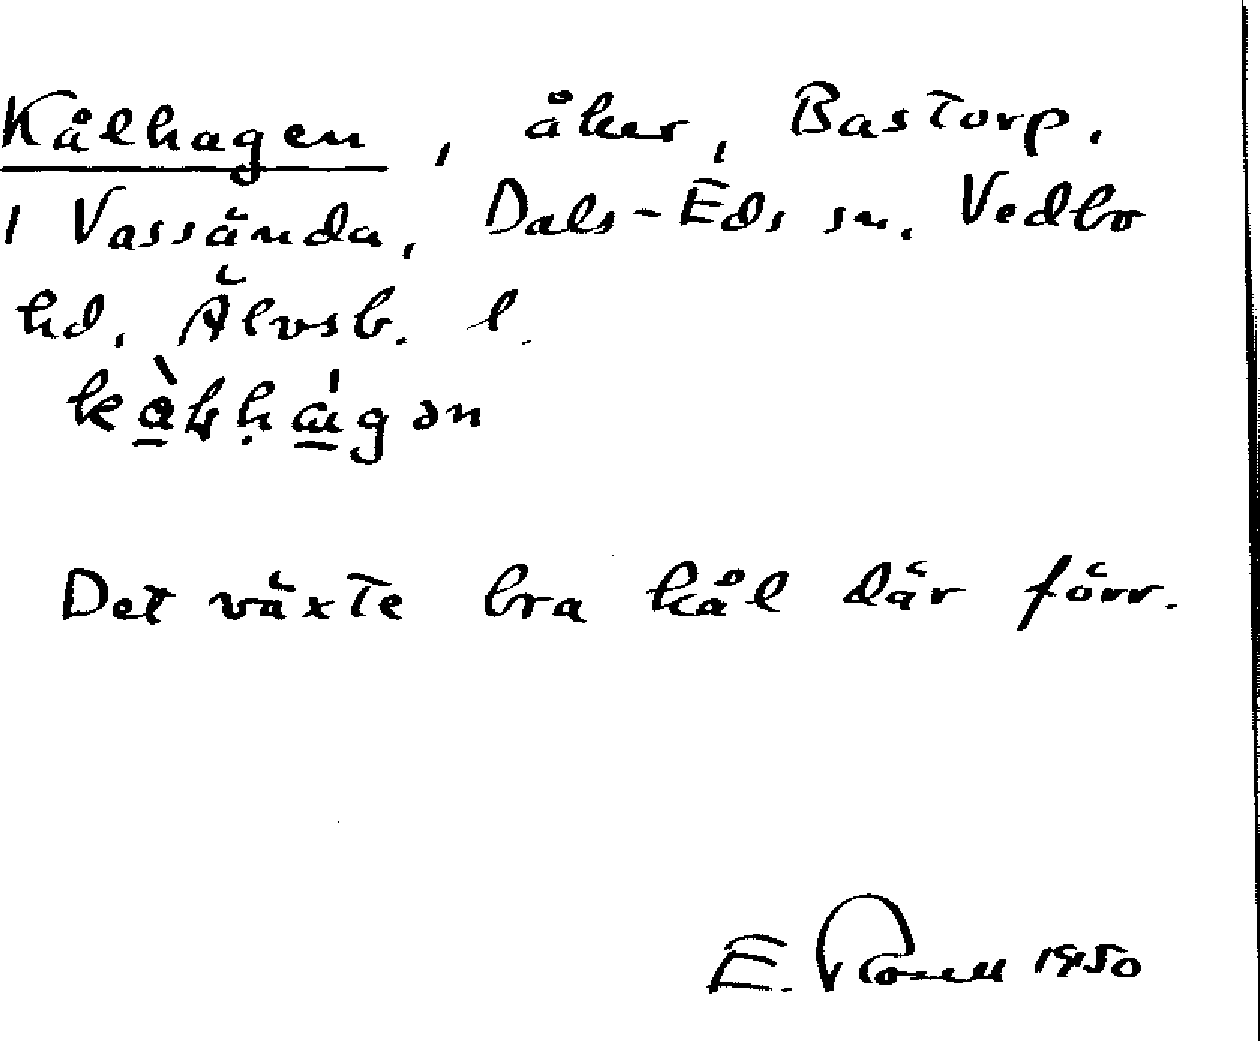 Kålhagen, åker, Bastorp,
1 Vassända, Dals-Eds sn. Vedbo
hd. Älvsb. l.
Det växte bra kål där förr.
E. 1950